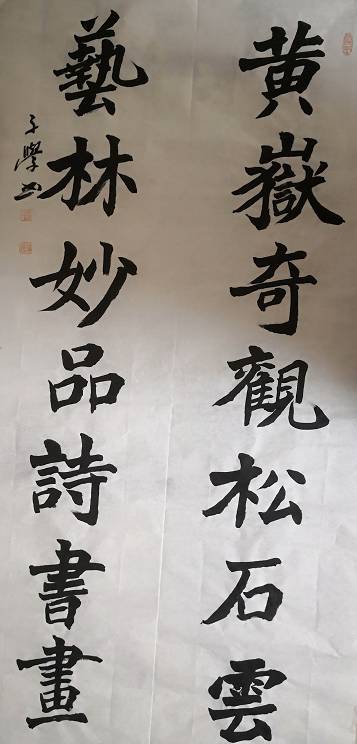 黄嶽奇觀松石雲
藝林妙品詩書畫
子學